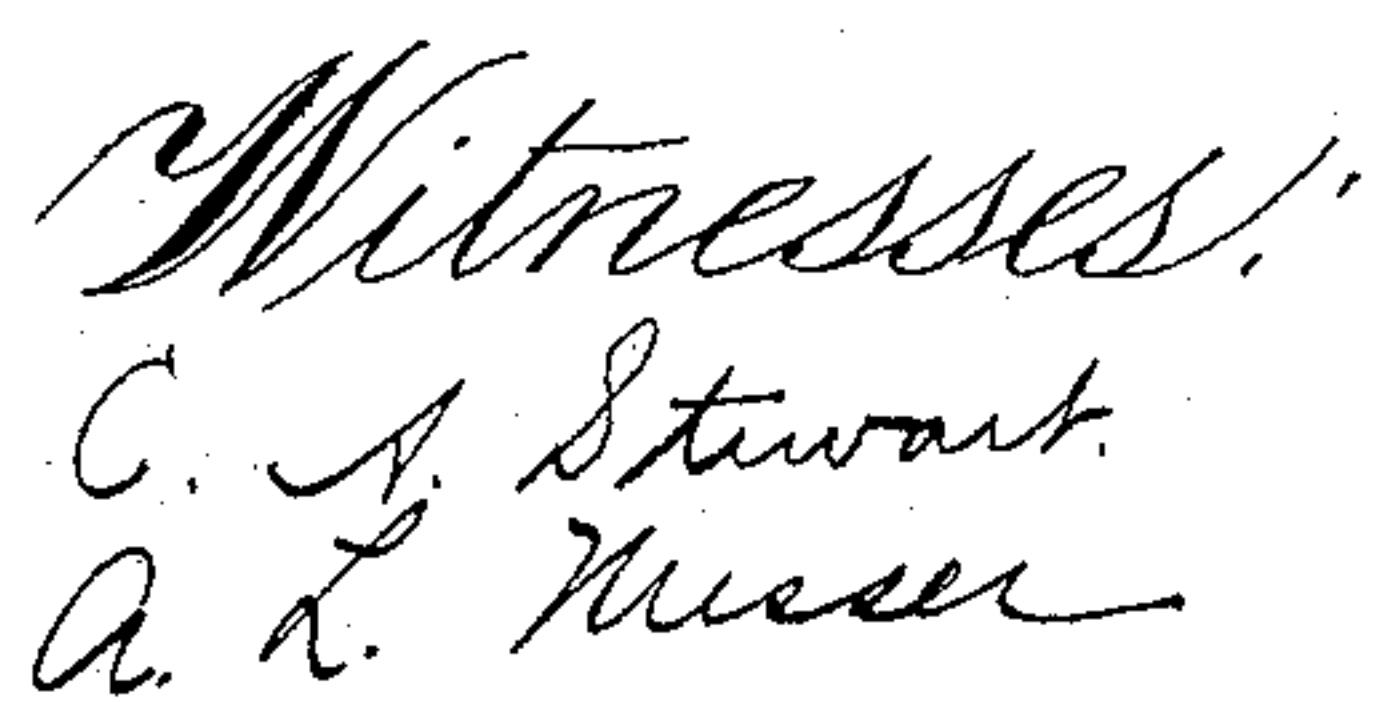 Witnesses:
C. S. Stewart.
A. L. Messer